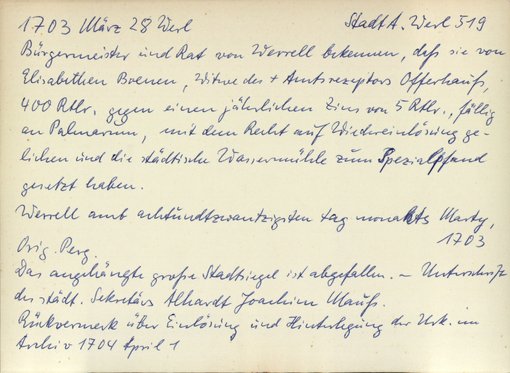 1703 März 28 Werl StadtA. Werl 519
Bürgermeister und Rat von Werrell bekennen, daß sie von
Elisabethen Boenen, Witwe des + Amtsrezeptors Offerhauß,
400 Rtlr. gegen einen jährlichen Zins von 5 Rtlr., fällig
an Palmarum, mit dem Recht auf Wiedereinlösung ge-
liehen und die städtische Wassermühle zum Spezialpfand
gesetzt haben.
Werrell amb achtundtzwantzigsten tag monahts Marty,
1703
Orig. Perg.
Das angehängte große Stadtsiegel ist abgefallen. – Unterschrift
des städt. Sekretärs Alhardt Joachim Mauß.
Rückvermerk über Einlösung und Hinterlegung der Urk. im
Archiv 1704 April 1